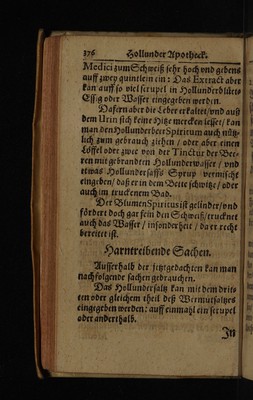 176 Hollunder Apotheck.
Medici zum Schweiß sehr hoch vnd gebens
auff zwey quintlein ein: Das Extract aber
kan auff so viel scrupel in Hollunderblütes
Essig oder Wasser eingegeben werden.
Dafern aber die Leber erkaltet / vnd auß
dem Urin sich keine Hitz mercken lesset / kan
man den Hollunderbeer Spiritum auch nütz-
lich zum gebrauch ziehen / oder aber einen
Löffel oder zwee von der Tinctur der Bee-
ren mit gebrandten Hollunderwasser / vnd
etwas Hollundersaffts Syrup vermischt
eingeben / daß er in dem Bette schwitze / oder
auch im truckenem Bad.
Der Blumen Spiritus ist gelinder / vnd
fördert doch gar fein den Schweiß / trucknet
auch das Wasser / insonderheit / da er recht
bereitet ist.
Harntreibende Sachen.
Ausserhalb der jetztgedachten kan man
nachfolgende sachen gebrauchen.
Das Hollundersaltz kan mit dem drit-
ten oder gleichem theil deß Wermutsaltzes
eingegeben werden: auff einmahl ein scrupel
oder anderthalb.
In